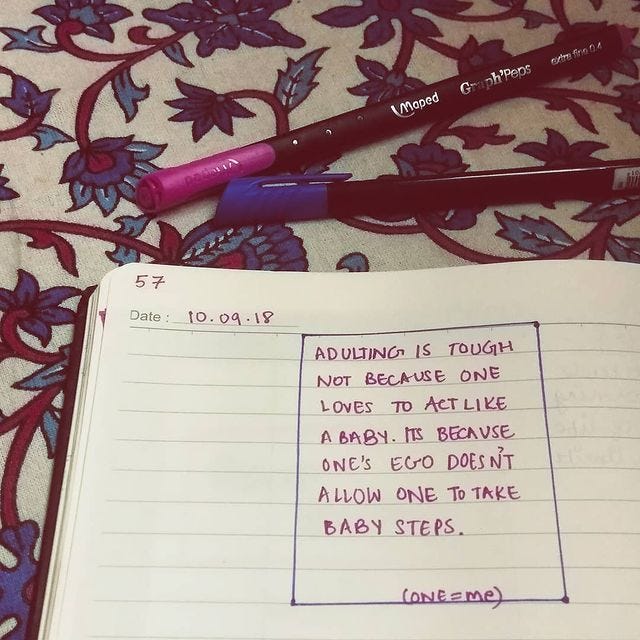 Maped Graph'Peps extra fine 0.4
Maped
57
Date : 10.09.18
ADULTING IS TOUGH
NOT BECAUSE ONE
LOVES TO ACT LIKE
A BABY. ITS BECAUSE
ONE'S EGO DOESN'T
ALLOW ONE TO TAKE
BABY STEPS.
(ONE = me)